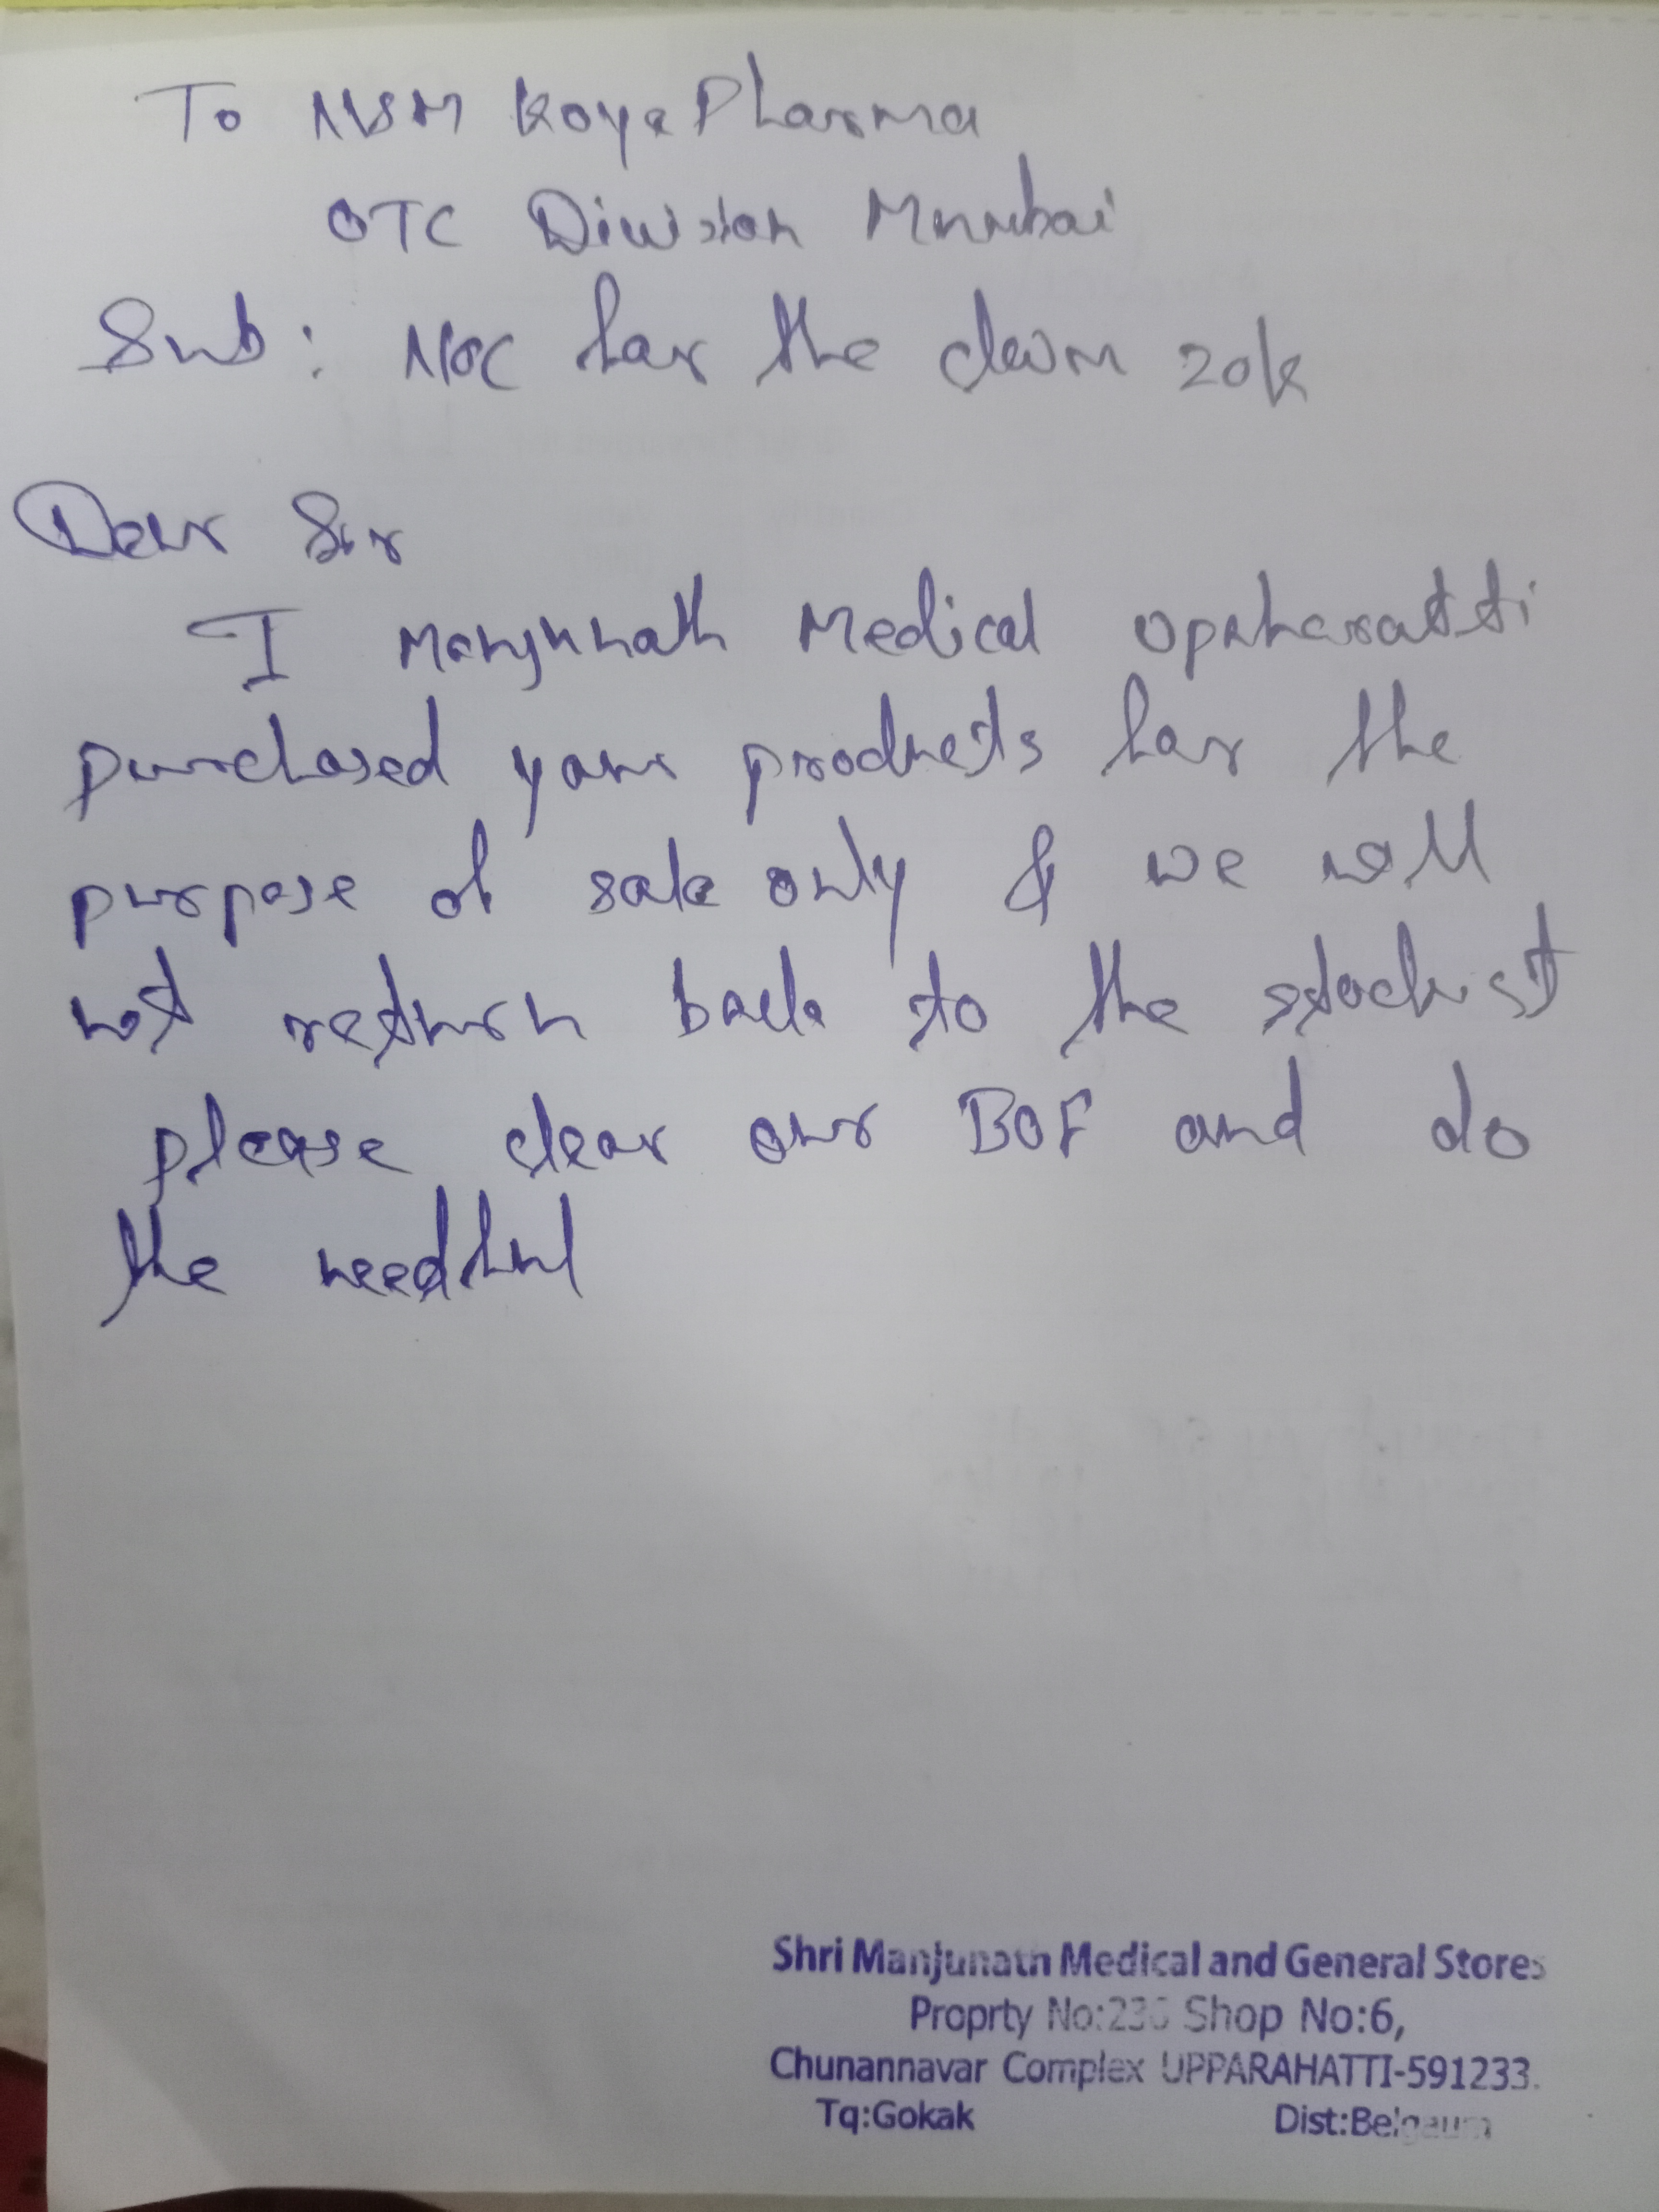 To NSM Koye Pharma
OTC Division Mumbai
Sub: NOC for the claim 20k
Dear Sir
I Manjunath Medical
purchased your products for the
purpose of sale only & we will
not return back to the stockist
please clear our BOF and do
the needful
Shri Manjunath Medical and General Stores
Proprty No:236 Shop No:6,
Chunannavar Complex UPPARAHATTI-591233.
Tq:Gokak Dist:Belgaum